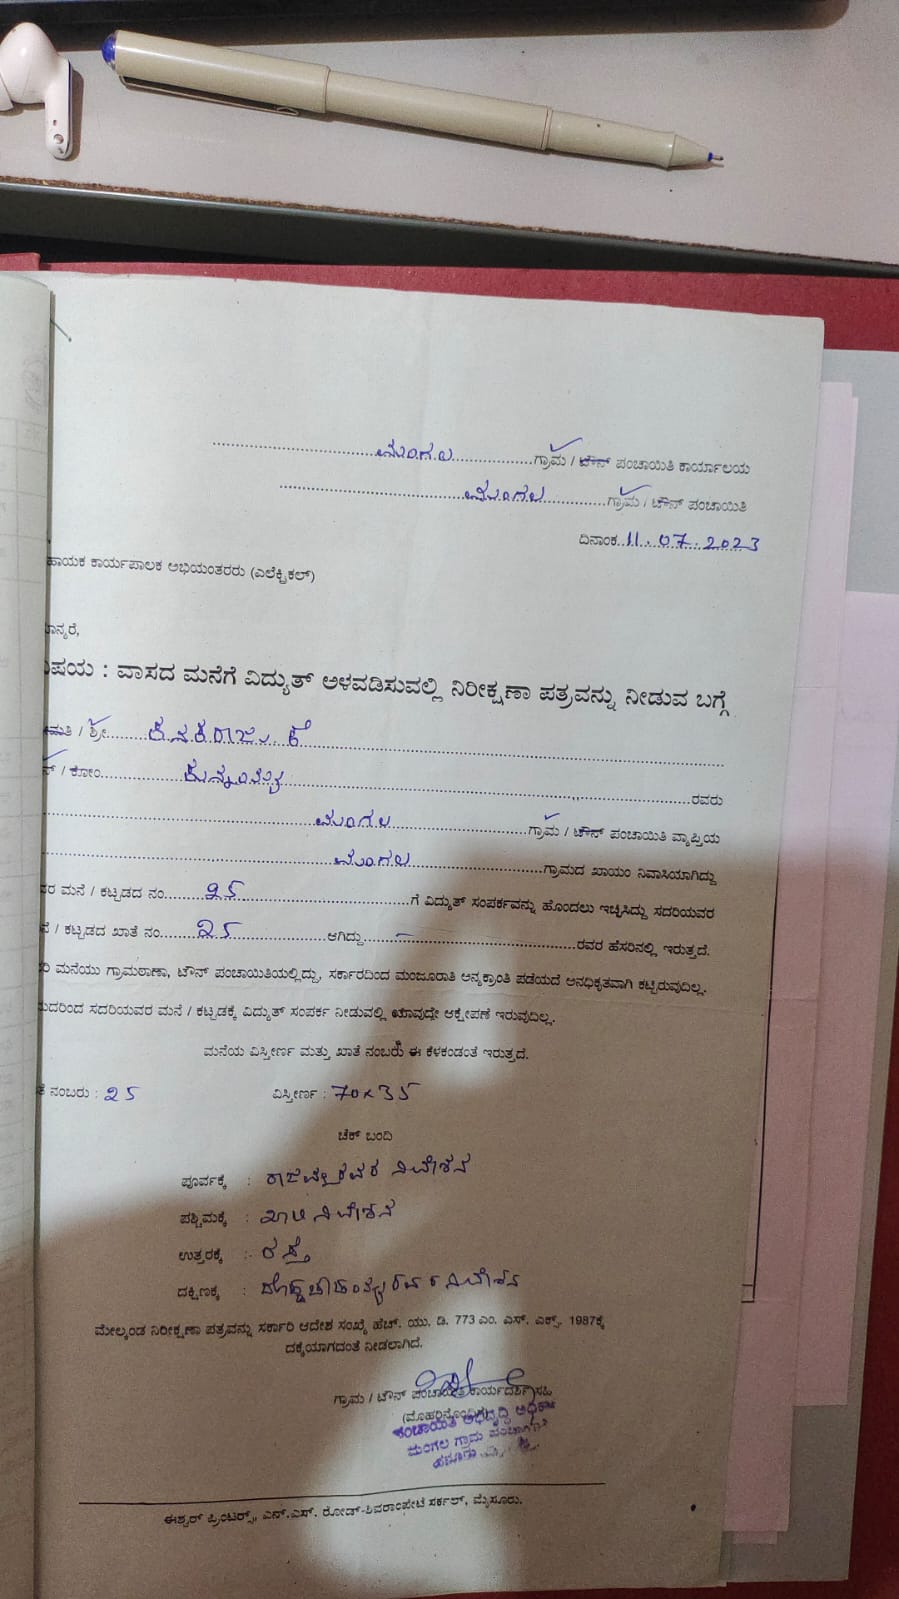 ಮಂಗಲ ಗ್ರಾಮ / ಟೌನ್ ಪಂಚಾಯಿತಿ ಕಾರ್ಯಾಲಯ
ಮಂಗಲ ಗ್ರಾಮ / ಟೌನ್ ಪಂಚಾಯಿತಿ
ದಿನಾಂಕ 11.07.2023
ಹಾಯಕ ಕಾರ್ಯಪಾಲಕ ಅಭಿಯಂತರರು (ಎಲೆಕ್ಟ್ರಿಕಲ್)
ಾನ್ಯರೆ,
ಿಷಯ : ವಾಸದ ಮನೆಗೆ ವಿದ್ಯುತ್ ಅಳವಡಿಸುವಲ್ಲಿ ನಿರೀಕ್ಷಣಾ ಪತ್ರವನ್ನು ನೀಡುವ ಬಗ್ಗೆ
ೀಮತಿ / ಶ್ರೀ ಕನಕರಾಜು. ಕೆ
ನ್ / ಕೋಂ ರವರು
ಮಂಗಲ ಗ್ರಾಮ / ಟೌನ್ ಪಂಚಾಯಿತಿ ವ್ಯಾಪ್ತಿಯ
ಮಂಗಲ ಗ್ರಾಮದ ಖಾಯಂ ನಿವಾಸಿಯಾಗಿದ್ದು
ವರ ಮನೆ / ಕಟ್ಟಡದ ನಂ. 25 ಗೆ ವಿದ್ಯುತ್ ಸಂಪರ್ಕವನ್ನು ಹೊಂದಲು ಇಚ್ಛಿಸಿದ್ದು ಸದರಿಯವರ
ನೆ / ಕಟ್ಟಡದ ಖಾತೆ ನಂ. 25 ಆಗಿದ್ದು — ರವರ ಹೆಸರಿನಲ್ಲಿ ಇರುತ್ತದೆ.
ರಿ ಮನೆಯು ಗ್ರಾಮಠಾಣಾ, ಟೌನ್ ಪಂಚಾಯಿತಿಯಲ್ಲಿದ್ದು, ಸರ್ಕಾರದಿಂದ ಮಂಜೂರಾತಿ ಅನ್ಯಕ್ರಾಂತಿ ಪಡೆಯದೆ ಅನಧಿಕೃತವಾಗಿ ಕಟ್ಟಿರುವುದಿಲ್ಲ.
ುದರಿಂದ ಸದರಿಯವರ ಮನೆ / ಕಟ್ಟಡಕ್ಕೆ ವಿದ್ಯುತ್ ಸಂಪರ್ಕ ನೀಡುವಲ್ಲಿ ಯಾವುದೇ ಆಕ್ಷೇಪಣೆ ಇರುವುದಿಲ್ಲ.
ಮನೆಯ ವಿಸ್ತೀರ್ಣ ಮತ್ತು ಖಾತೆ ನಂಬರು ಈ ಕೆಳಕಂಡಂತೆ ಇರುತ್ತದೆ.
ತೆ ನಂಬರು : 25 ವಿಸ್ತೀರ್ಣ : 70x35
ಚೆಕ್ ಬಂದಿ
ಪೂರ್ವಕ್ಕೆ : ನಿವೇಶನ
ಪಶ್ಚಿಮಕ್ಕೆ : ಖಾಲಿ ನಿವೇಶನ
ಉತ್ತರಕ್ಕೆ : ರಸ್ತೆ
ದಕ್ಷಿಣಕ್ಕೆ : ನಿವೇಶನ
ಮೇಲ್ಕಂಡ ನಿರೀಕ್ಷಣಾ ಪತ್ರವನ್ನು ಸರ್ಕಾರಿ ಆದೇಶ ಸಂಖ್ಯೆ ಹೆಚ್. ಯು. ಡಿ. 773 ಎಂ. ಎಸ್. ಎಕ್ಸ್. 1987ಕ್ಕೆ
ದಕ್ಕೆಯಾಗದಂತೆ ನೀಡಲಾಗಿದೆ.
ಗ್ರಾಮ / ಟೌನ್ ಪಂಚಾಯಿತಿ ಕಾರ್ಯದರ್ಶಿ ಸಹಿ
(ಮೊಹರಿನೊಂದಿಗೆ)
ಪಂಚಾಯಿತಿ ಅಭಿವೃದ್ಧಿ ಅಧಿಕಾರಿ
ಮಂಗಲ ಗ್ರಾಮ ಪಂಚಾಯಿತಿ
ಈಶ್ವರ್ ಪ್ರಿಂಟರ್ಸ್, ಎನ್.ಎಸ್. ರೋಡ್-ಶಿವರಾಂಪೇಟೆ ಸರ್ಕಲ್, ಮೈಸೂರು.